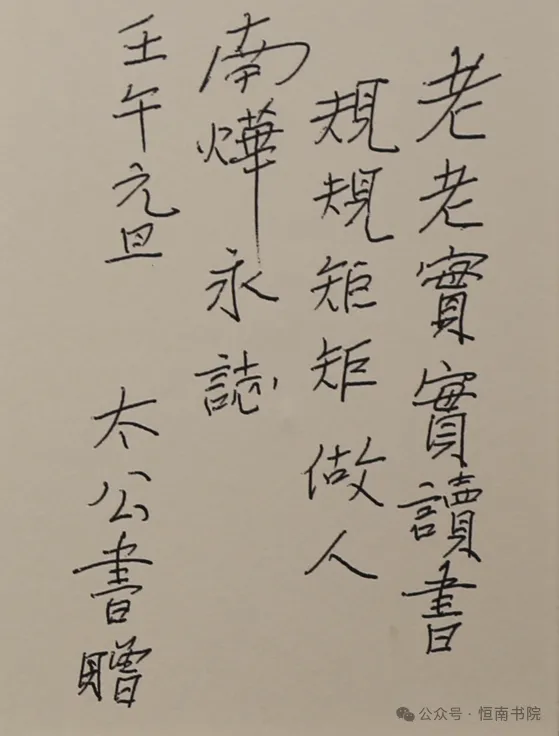 老老實實讀書
規規矩矩做人
南燁永誌
壬午元旦
太公書贈
公众号·恒南书院